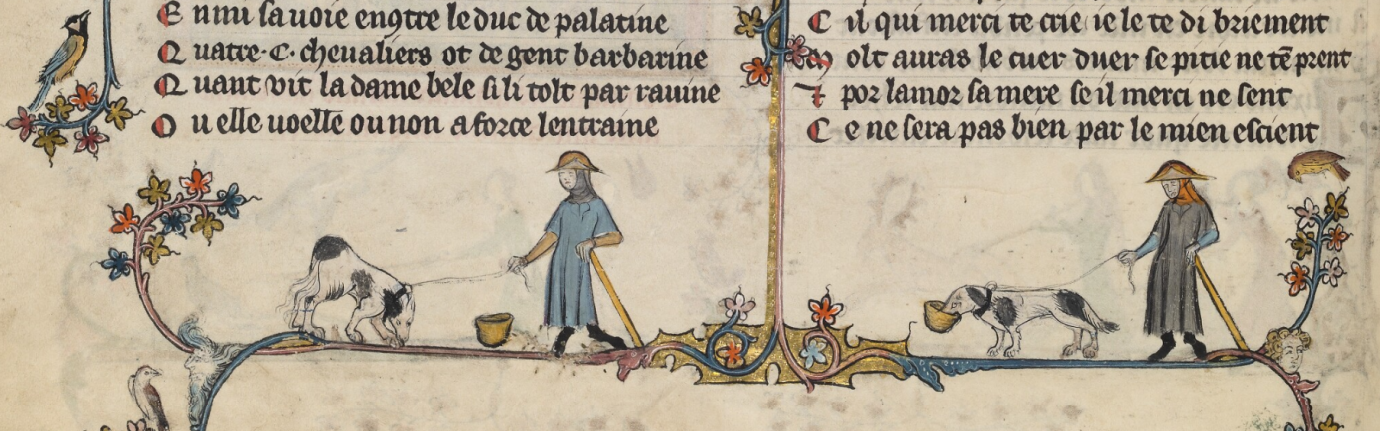 E nmi sa uoie enqtre le duc de palatine
Q uatre·C· cheualiers ot de gent barbarine
Q uant vit la dame bele si li tolt par rauine
O u elle uoelle ou non a force lentraine
C il qui merci te crie ie le te di briement
M olt auras le cuer duer se pitie ne tẽ prent
⁊ por lamor sa mere se il merci ne sent
C e ne sera pas bien par le mien escient